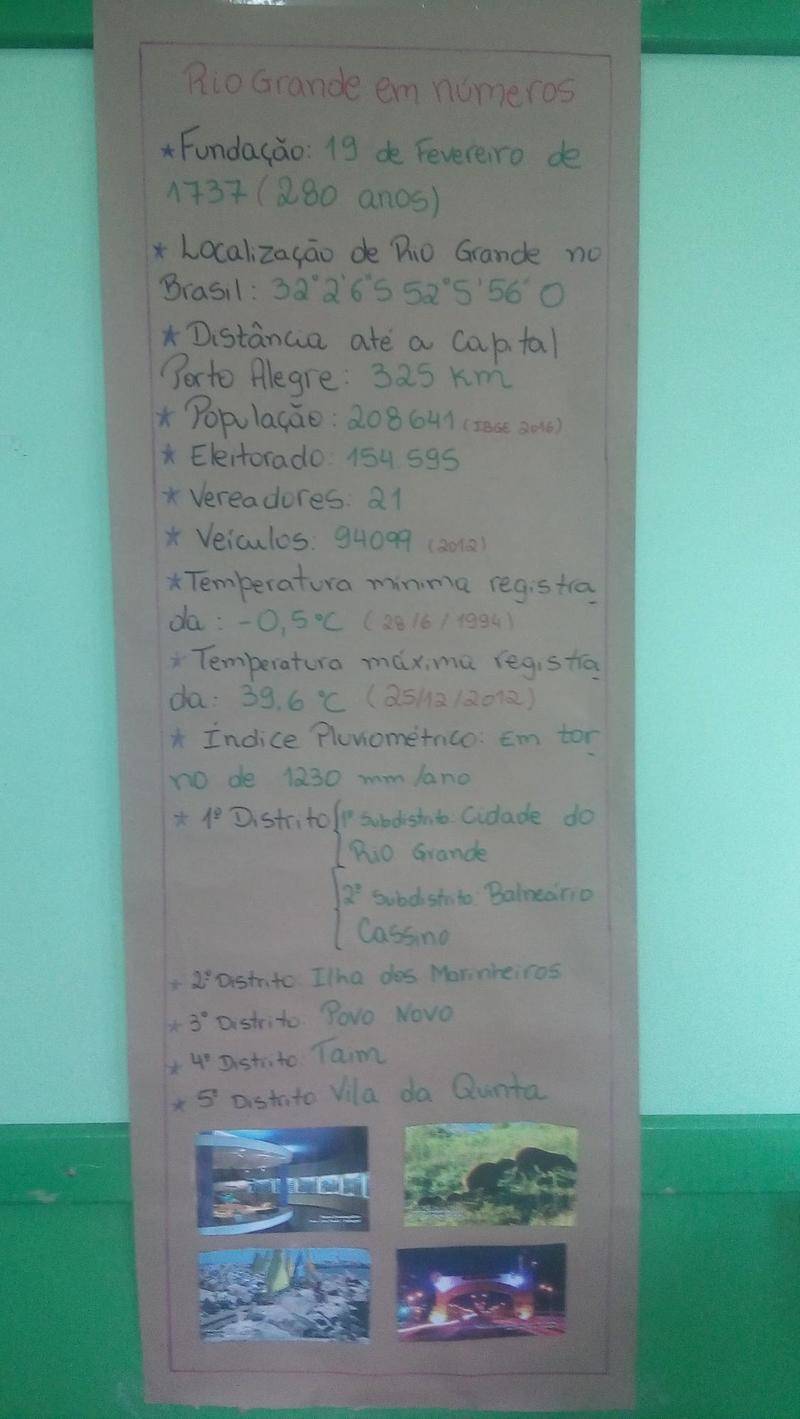 Rio Grande em números
* Fundação: 19 de Fevereiro de
1737 (280 anos)
* Localização de Rio Grande no
Brasil: 32°2'6"S 52°5'56"O
* Distância até a Capital
Porto Alegre: 325 Km
* População: 208641 (IBGE 2016)
* Eleitorado: 154.595
* Vereadores: 21
* Veículos: 94099 (2012)
* Temperatura mínima registra
da: -0,5°C (28/6/1994)
* Temperatura máxima registra
da: 39,6 °C (25/12/2012)
* Índice Pluviométrico: Em tor
no de 1230 mm/ano
* 1º Distrito { 1º Subdistrito: Cidade do
Rio Grande
{ 2º Subdistrito: Balneário
Cassino
* 2º Distrito: Ilha dos Marinheiros
* 3º Distrito: Povo Novo
* 4º Distrito: Taim
* 5º Distrito Vila da Quinta